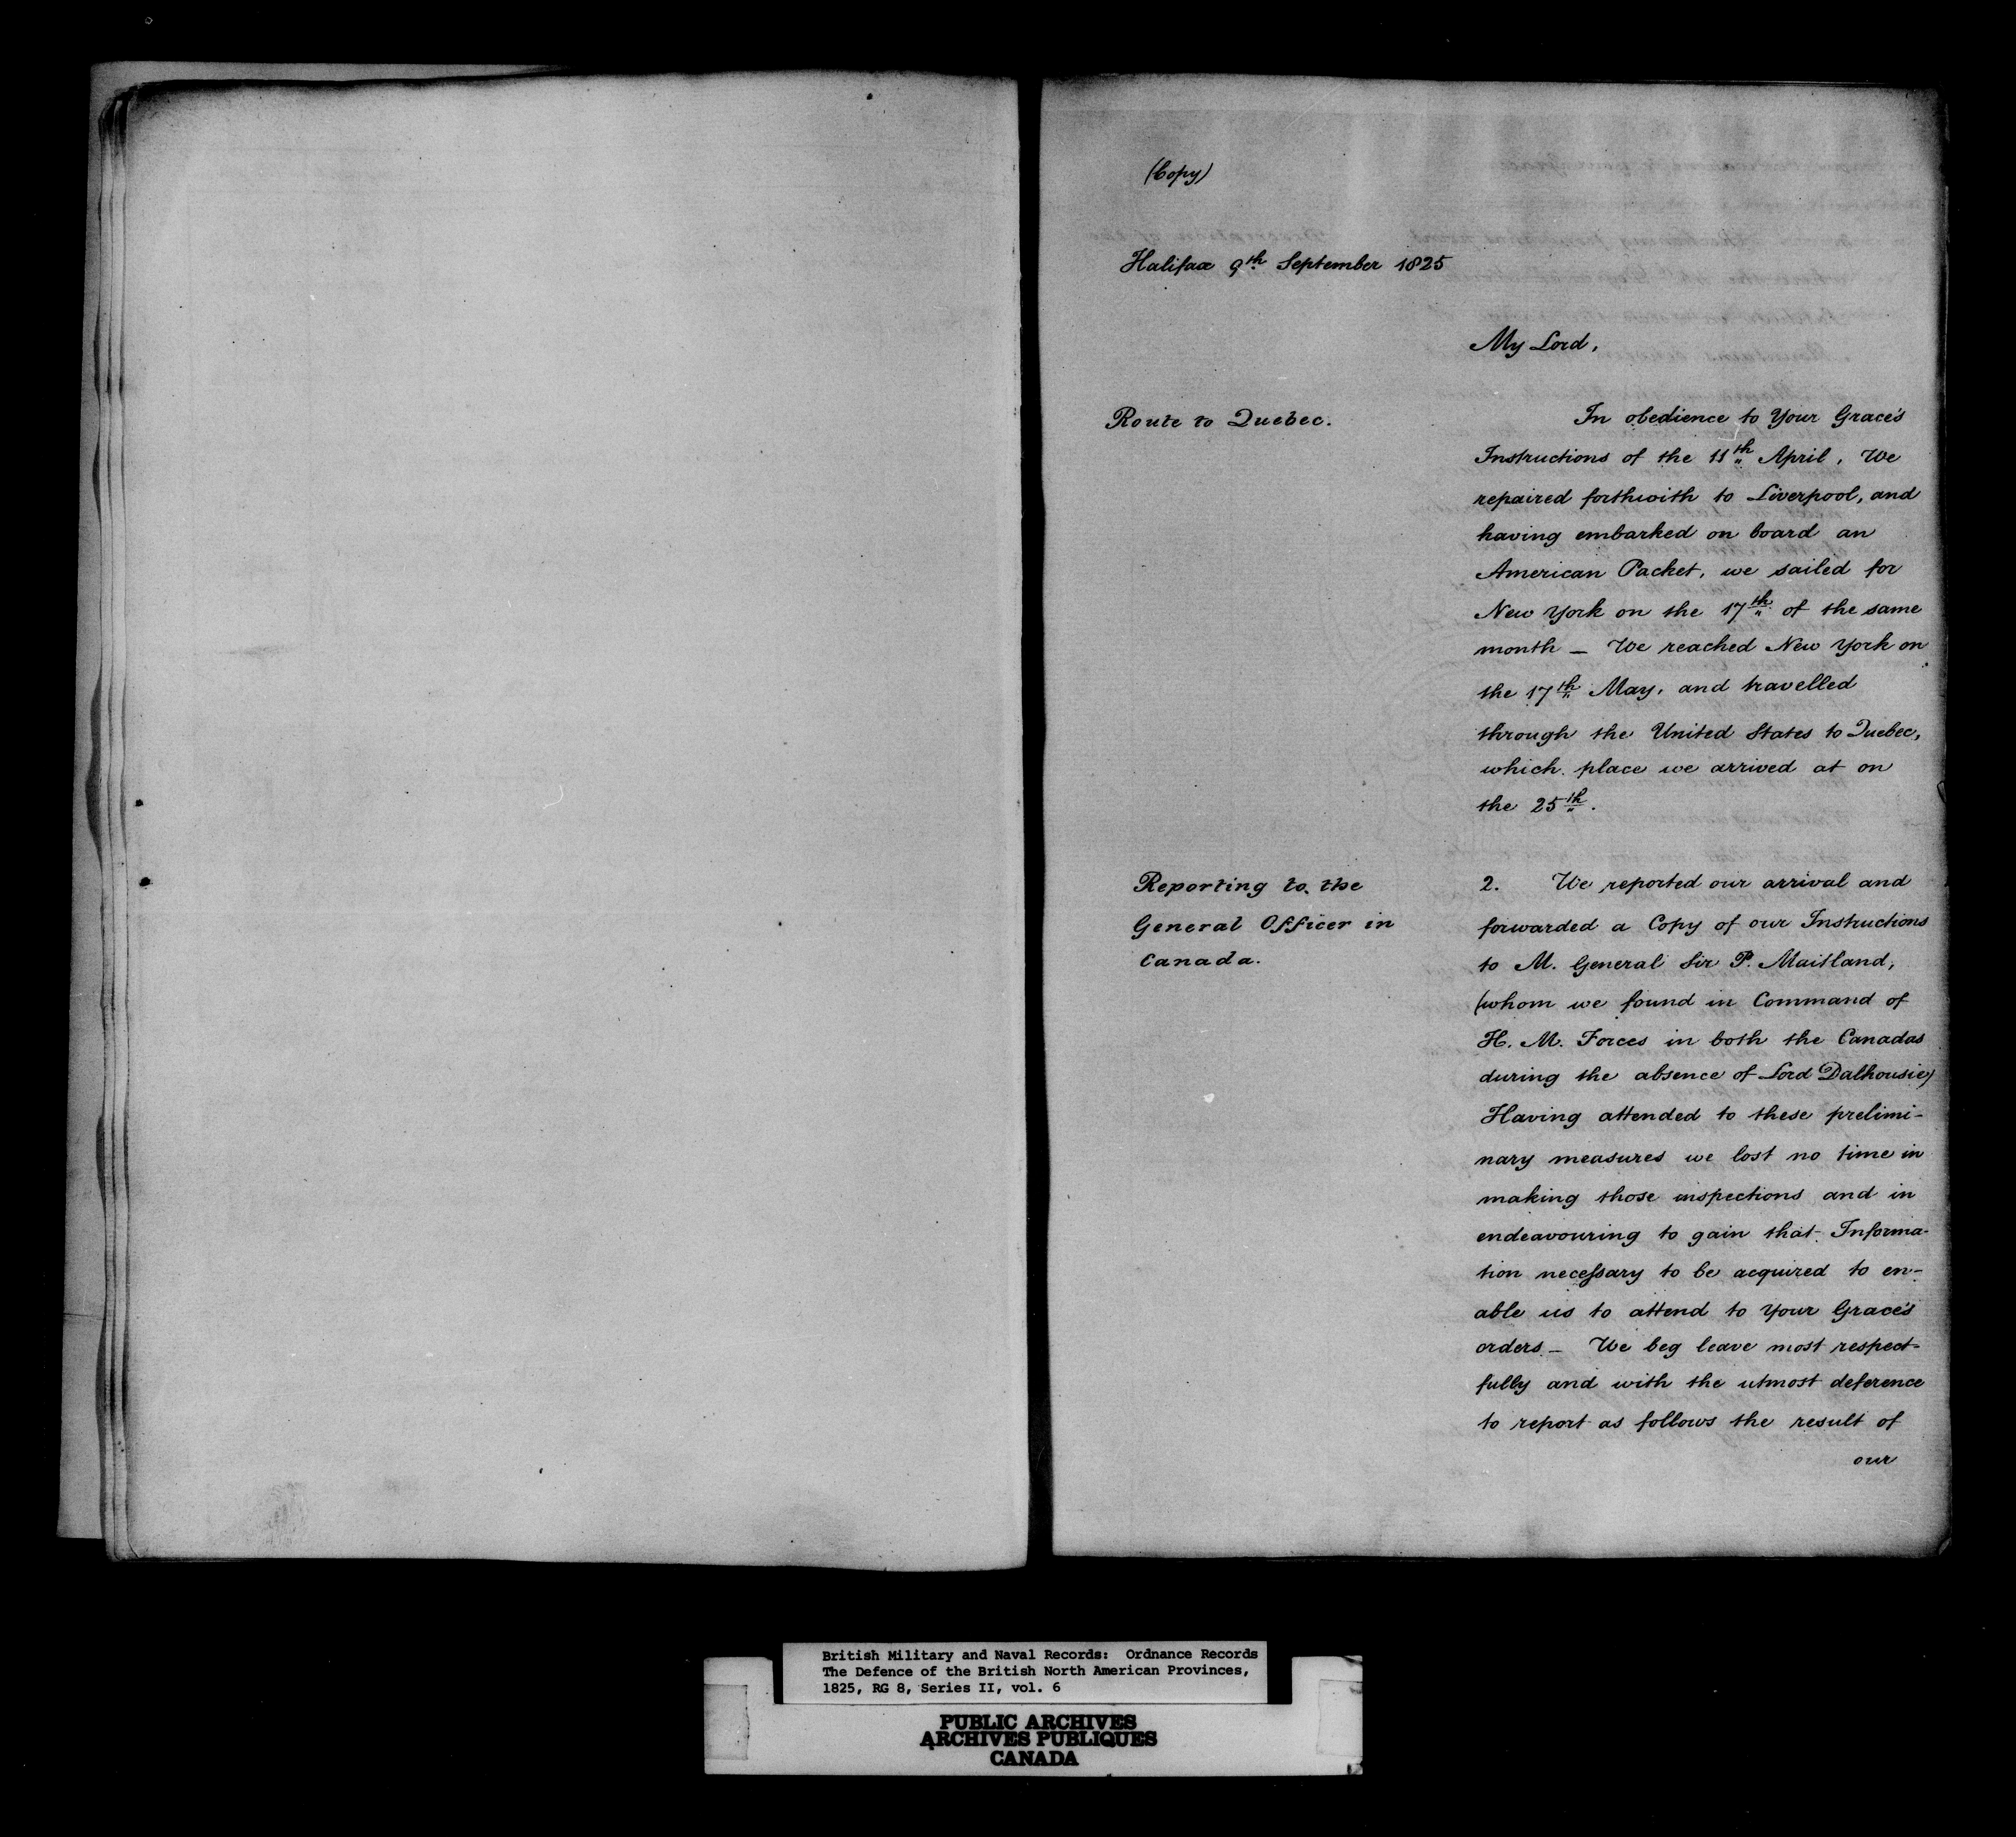 (Copy)
Halifax 9th September 1825
My Lord,
Route to Quebec.
In obedience to Your Grace's
Instructions of the 11th April, We
repaired forthwith to Liverpool, and
having embarked on board an
American Packet, we sailed for
New York on the 17th of the same
month – We reached New York on
the 17th May, and travelled
through the United States to Quebec,
which place we arrived at on
the 25th.
Reporting to the
General Officer in
Canada.
2. We reported our arrival and
forwarded a Copy of our Instructions
to M. General Sir P. Maitland,
(whom we found in Command of
H. M. Forces in both the Canadas
during the absence of Lord Dalhousie)
Having attended to these prelimi-
nary measures we lost no time in
making those inspections and in
endeavouring to gain that Informa-
tion necessary to be acquired to en-
able us to attend to Your Grace's
orders – We beg leave most respect-
fully and with the utmost deference
to report as follows the result of
our
British Military and Naval Records: Ordnance Records
The Defence of the British North American Provinces,
1825, RG 8, Series II, vol. 6
PUBLIC ARCHIVES
ARCHIVES PUBLIQUES
CANADA